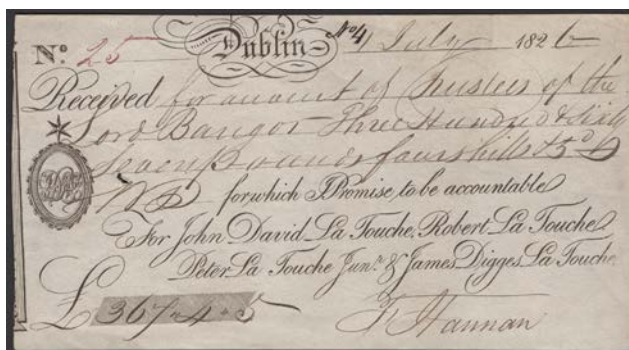 No. 25 Dublin No 4 1 July 1826
Received for account of Trustees of the
Lord Bangor Three Hundred & Sixty
Seven Pounds four shills & 5d
for which I Promise to be accountable
For John David La Touche, Robert La Touche
Peter La Touche Junr. & James Digges La Touche
£ 367-4-5 Hannan